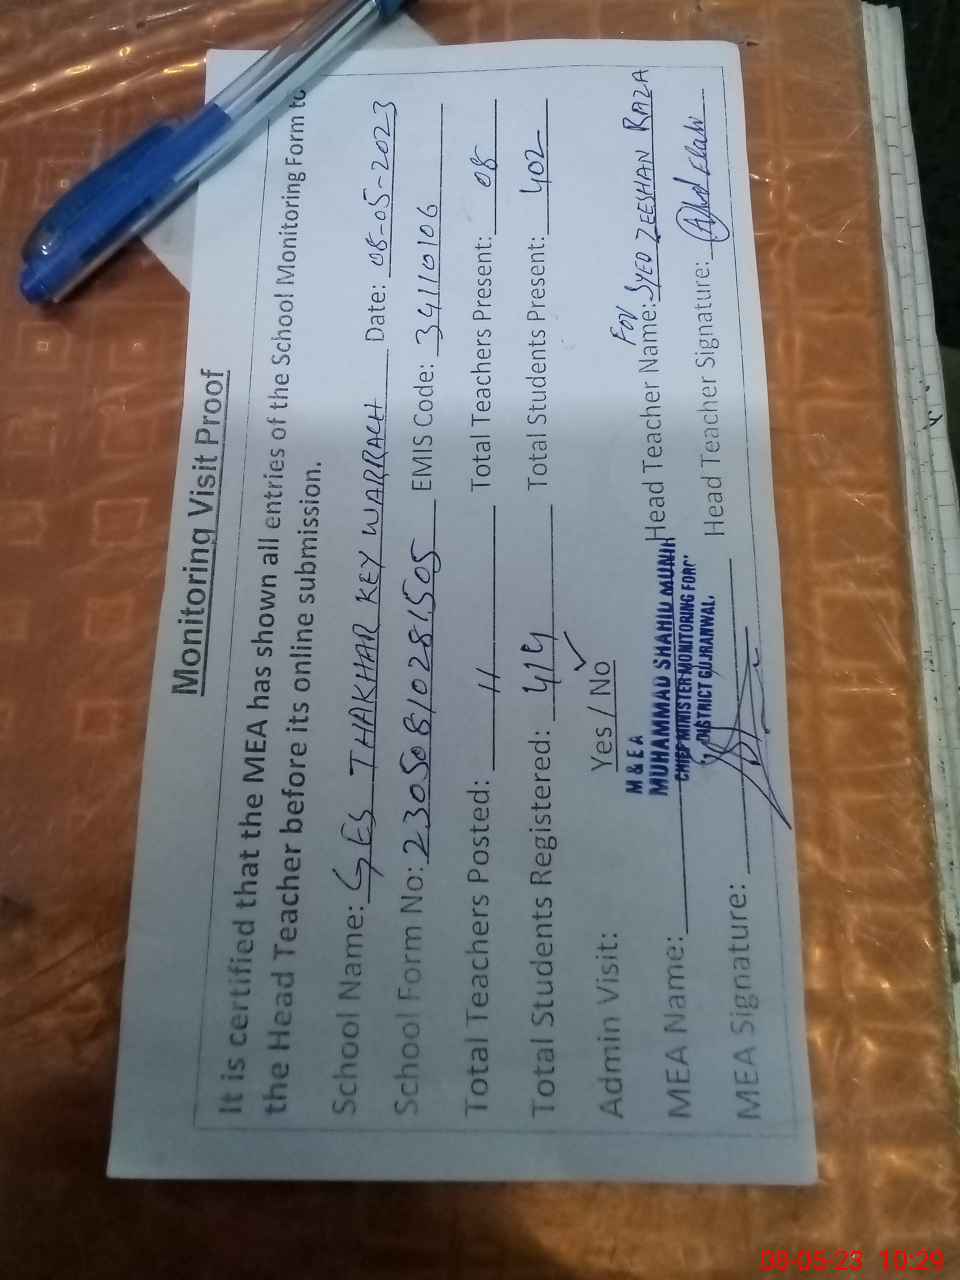 Monitoring Visit Proof
It is certified that the MEA has shown all entries of the School Monitoring Form to
the Head Teacher before its online submission.
School Name: GES THAKHAR KEY WARRACH Date: 08-05-2023
School Form No: 23050810281505 EMIS Code: 34110106
Total Teachers Posted: 11 Total Teachers Present: 08
Total Students Registered: 419 Total Students Present: 402
Admin Visit: Yes / No ✓
M & E A
For
MEA Name: MUHAMMAD SHAHID MUNIR Head Teacher Name: SYED ZEESHAN RAZA
CHIEF MINISTER MONITORING FORC
DISTRICT GUJRANWAL
MEA Signature: Head Teacher Signature: Elahi
08-05-23 10:29